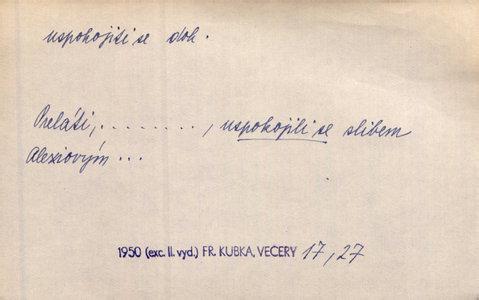 uspokojiti se dok.
Preláti, ........, uspokojili se slibem
Alexiovým ...
1950 (exc. II. vyd.) FR. KUBKA, VEČERY 17, 27